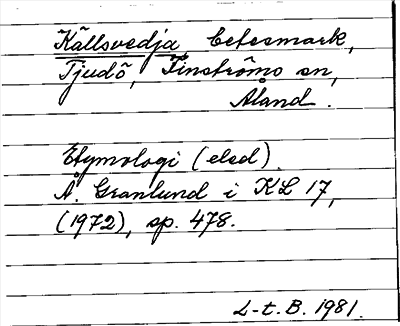 Källsvedja, betesmark,
Tjudö, Finströms sn,
Åland.
Etymologi (elsd).
Å. Granlund i KL 17,
(1972), sp. 478.
L-t. B. 1981.